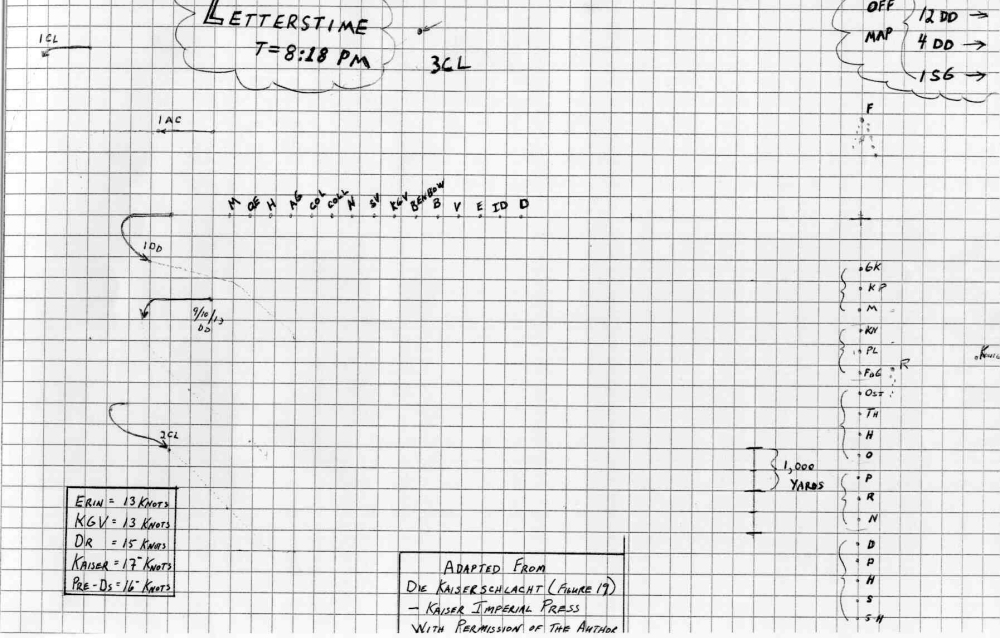 LETTERSTIME
T=8:18 PM
3CL
1CL
OFF
MAP
12 DD →
4 DD →
1SG →
F
1AC
M QE H AG COL COLL N SV KGV BENBOW B V E ID D
1DD
9/10/13
DD
2CL
GK
KP
M
KN
PL
FDG
R
OST
TH
H
O
P
R
N
D
P
H
S
SH
1,000
YARDS
ERIN = 13 KNOTS
KGV = 13 KNOTS
DR = 15 KNOTS
KAISER = 17 KNOTS
PRE-DS = 16 KNOTS
ADAPTED FROM
DIE KAISERSCHLACHT (FIGURE 19)
- KAISER IMPERIAL PRESS
WITH PERMISSION OF THE AUTHOR